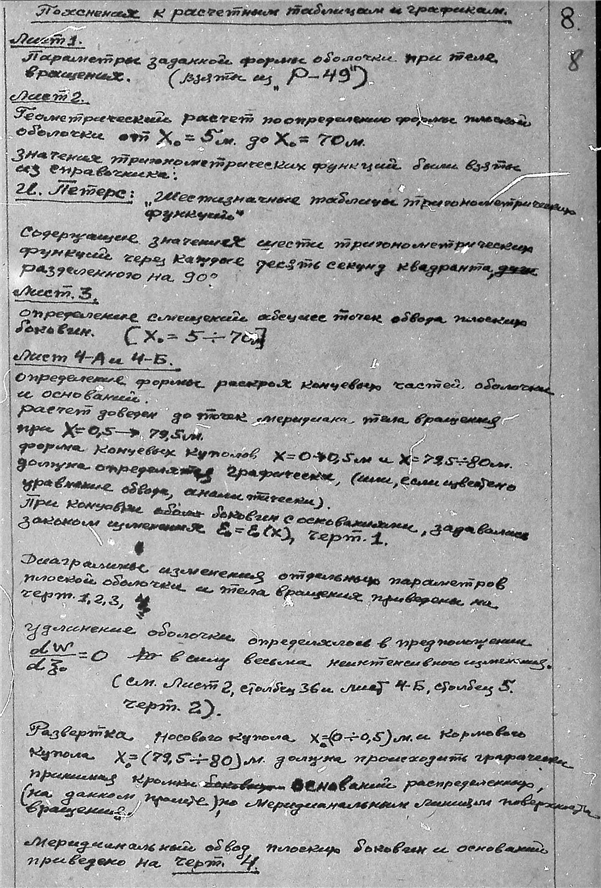 Пояснения к расчетным таблицам и графикам.
8.
8
Лист 1.
Параметры заданной формы оболочки при теле
вращения. (взяты из „Р-49")
Лист 2.
Геометрический расчет по определению формы плоской
оболочки от X₀ = 5м. до X₀ = 70м.
Значения тригонометрических функций были взяты
из справочника:
И. Петерс: „Шестизначные таблицы тригонометрических
функций"
Содержащие значения шести тригонометрических
функций через каждые десять секунд квадранта,
разделенного на 90°
Лист. 3.
определение смещений абсцисс точек обвода плоских
боковин. (X₀ = 5 ÷ 70м)
Лист 4-А и 4-Б.
определение формы раскроя концевых частей оболочки
и оснований.
расчет доведен до точек меридиана тела вращения
при X=0,5 → 79,5м.
форма концевых куполов X=0→0,5м и X=79,5÷80м.
должна определятся графически, (или, если известно
уравнение обвода, аналитически).
При концевых боковин с основаниями, задавались
законом изменения ε₀=ε₀(x), черт. 1.
Диаграммы изменения отдельных параметров
плоской оболочки и тела вращения приведены на
черт. 1, 2, 3,
Удлинение оболочки определялось в предположении
dW/dξ₀ = 0 в силу весьма неинтенсивного изменения.
(см. Лист 2, столбец 36 и лист 4-Б, столбец 5.
черт. 2).
Развертка носового купола X₀=(0÷0,5)м. и кормового
купола X=(79,5÷80)м. должна происходить графически
принимая кромки оснований распределенную,
(на данном пункте) по меридианальным линиям поверхности
вращения.
Меридианальный обвод плоских боковин и оснований
приведено на черт. 4.